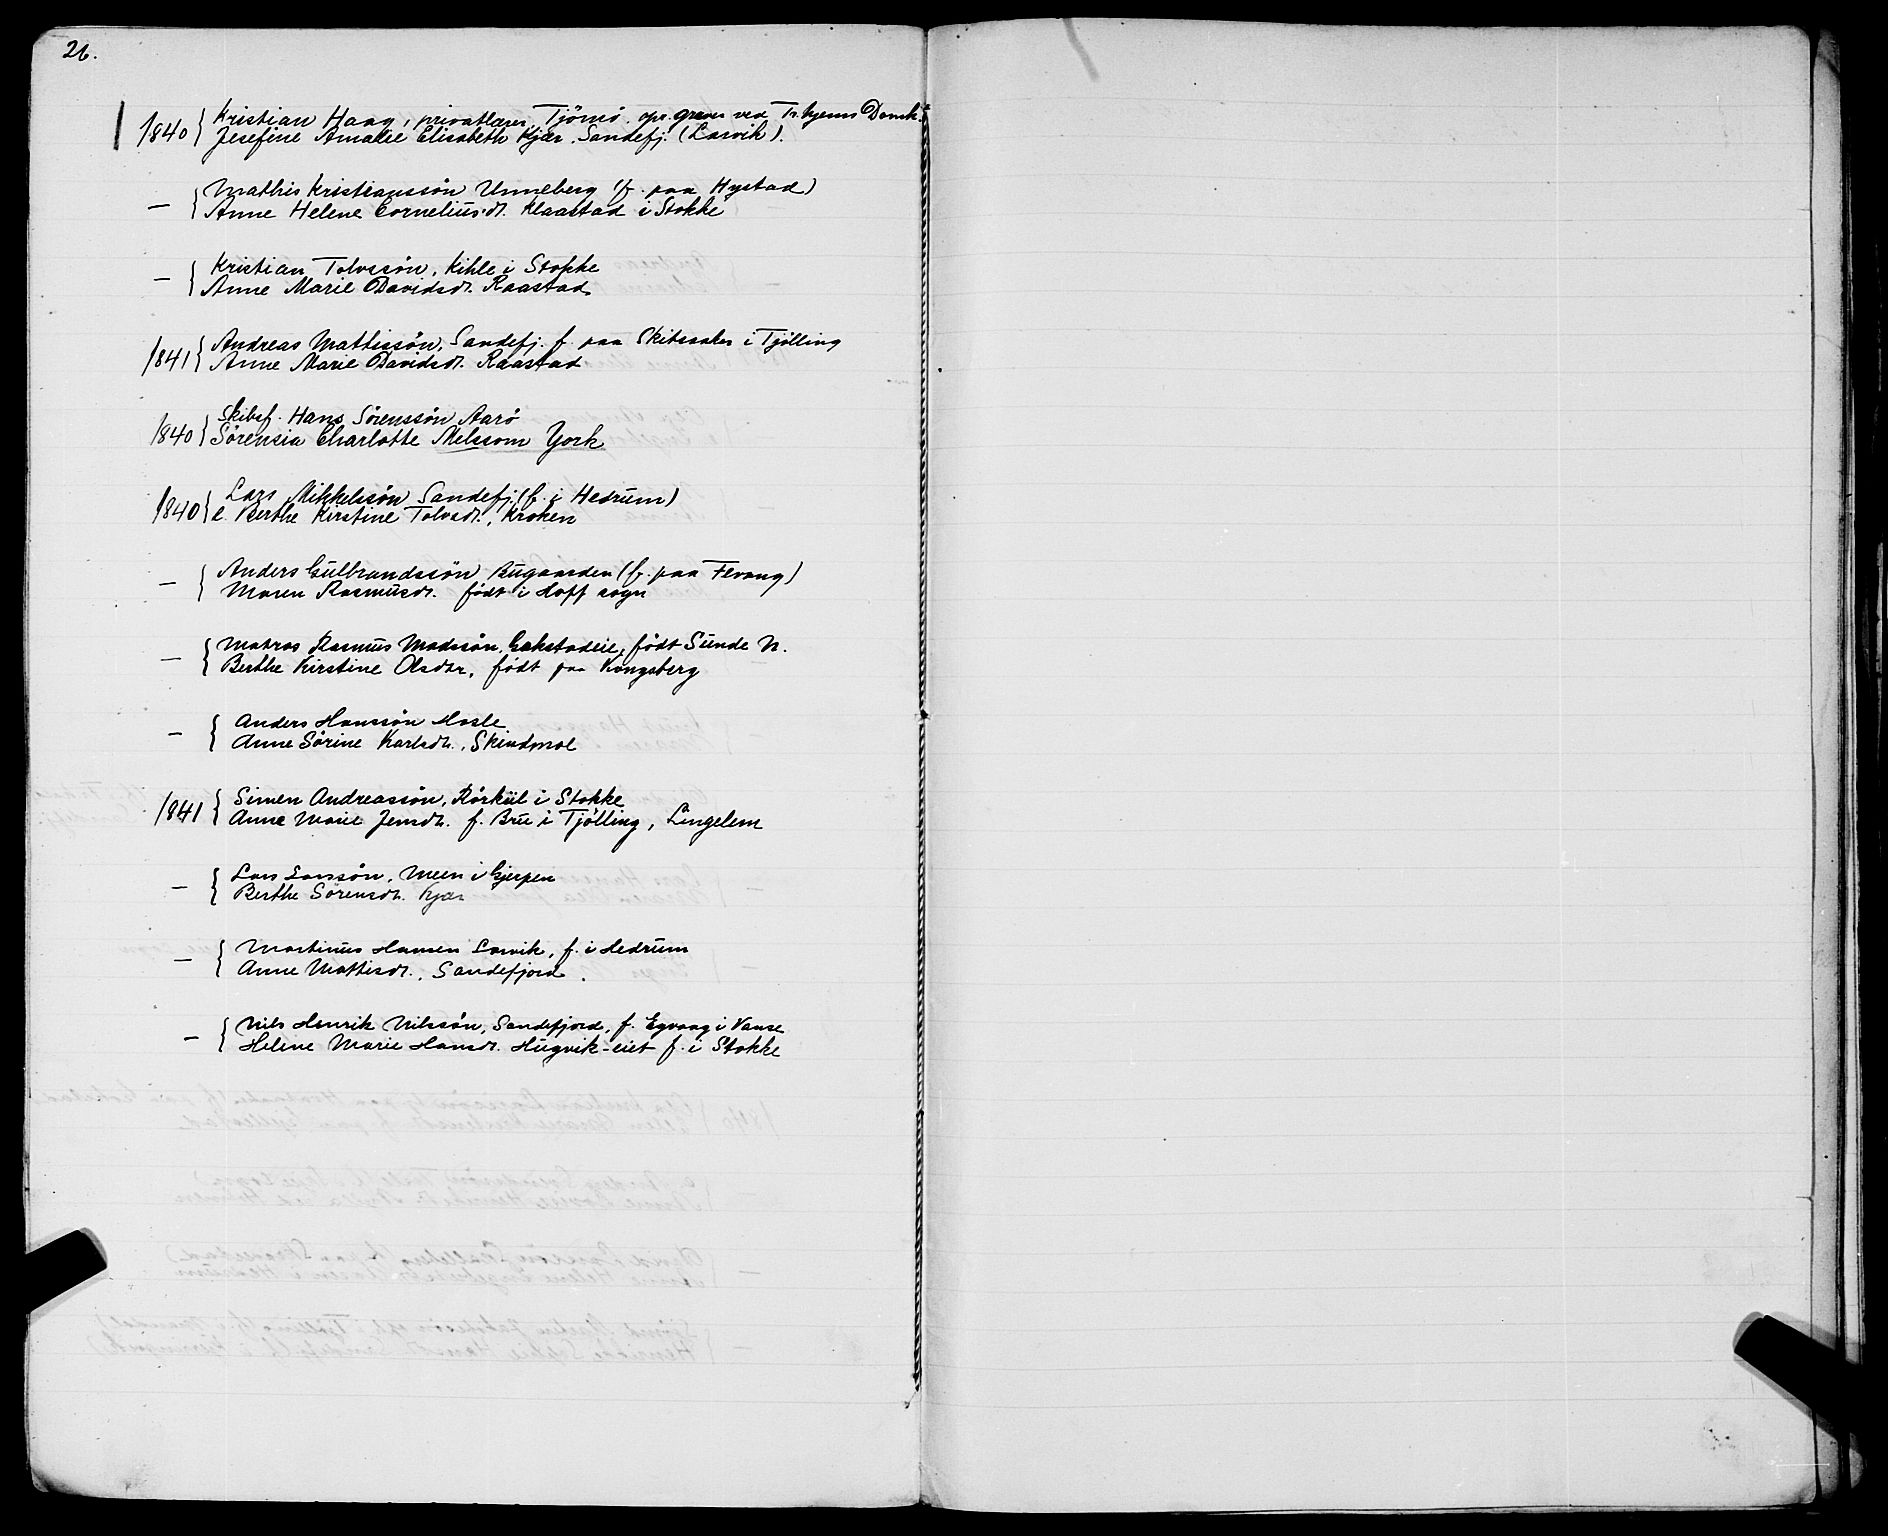 26.
1840 { Kristian Haag, privatlærer Tjømö. opr. graver ved Tr.hjems Domk.
Josefine Amalie Elisabeth Kjær. Sandefj. (Larvik).
— { Mathis Kristianssön Unneberg (f. paa Hystad)
Anne Helene Cornelius.dt. Klaastad i Stokke
— { Kristian Tolvssön, Kihle i Stokke
Anne Marie Davidsdt. Raastad
1841 { Andreas Mathissön, Sandefj. f. paa Skitsaker i Tjölling
Anne Marie Davidsdt. Raastad
1840 { Skibsf. Hans Sörenssön Aarö
Sörensia Charlotte Melssom York
1840 { Lars Mikkelssön Sandefj. (f. i Hedrum)
e. Berthe Kirstine Tolvsdt., Kroken
— { Anders Gulbrandssön Bugaarden (f. paa Fevang)
Maren Rasmusdt. födt i Hoff sogn
— { Matros Rasmus Madssön, Gokstadeie, födt Sunde N.
Berthe Kirstine Olsdtr, födt paa Kongsberg
— { Anders Hanssön Hasle
Anne Sörine Karlsdt., Skindmol
1841 { Simen Andreassön, Rörkül i Stokke
Anne Marie Jensdt. f. Bru i Tjölling, Lingelem
— { Lars Larssön, Meen i Gjerpen
Berthe Sörensdt. Kjær
— { Martinus Hansen Larvik, f. i Hedrum
Anne Mathisdt., Sandefjord.
— { Nils Henrik Nilssön, Sandefjord, f. Egvaag i Vanse
Heline Marie Hansdt. Hugvik-eiet f. i Stokke